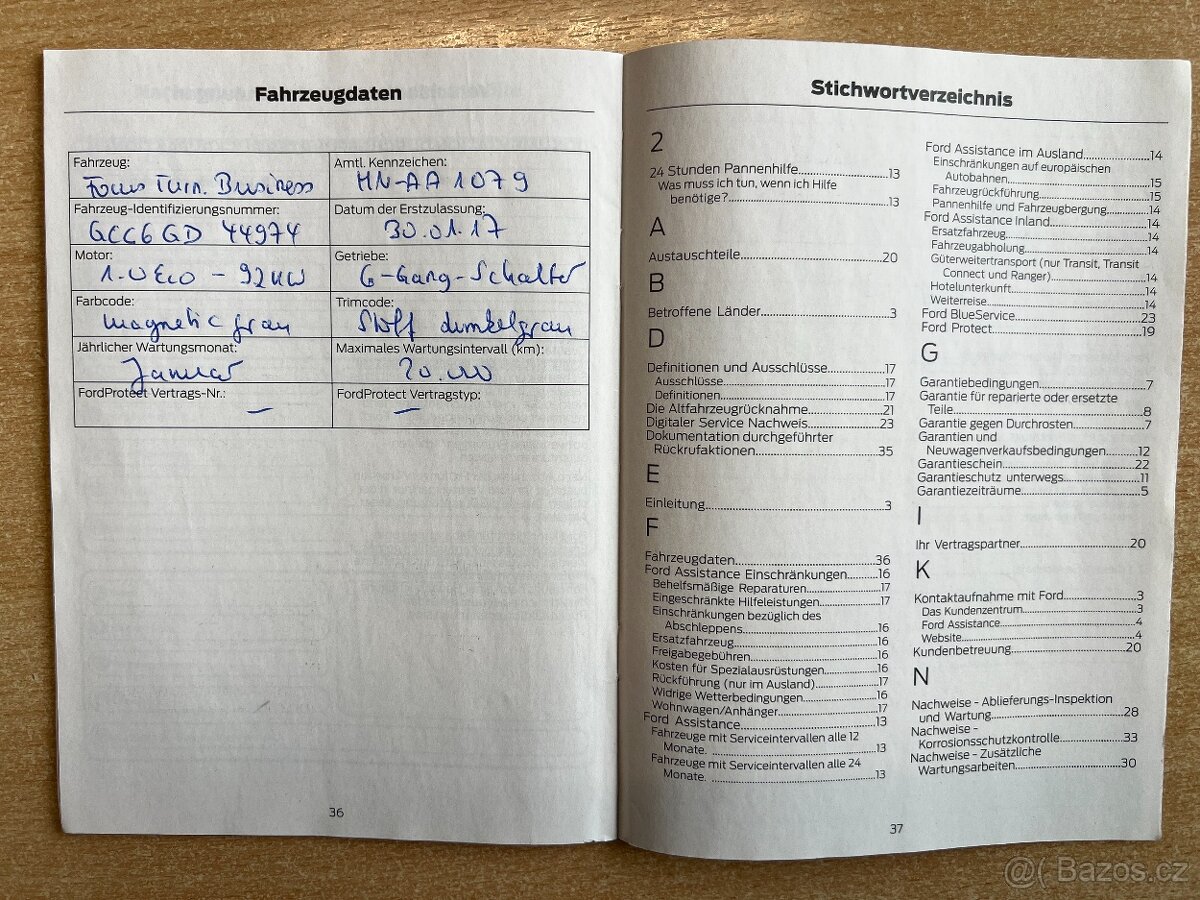 Fahrzeugdaten
Fahrzeug:
Focus Turn. Business
Amtl. Kennzeichen:
MN-AA 1079
Fahrzeug-Identifizierungsnummer:
GCC6GD 44974
Datum der Erstzulassung:
30.01.17
Motor:
1.0 Eco - 92KW
Getriebe:
6-Gang-Schalter
Farbcode:
magnetic grau
Trimcode:
Stoff dunkelgrau
Jährlicher Wartungsmonat:
Januar
Maximales Wartungsintervall (km):
20.000
FordProtect Vertrags-Nr.:
—
FordProtect Vertragstyp:
—
36
Stichwortverzeichnis
2
24 Stunden Pannenhilfe.....13
Was muss ich tun, wenn ich Hilfe
benötige?.....13
A
Austauschteile.....20
B
Betroffene Länder.....3
D
Definitionen und Ausschlüsse.....17
Ausschlüsse.....17
Definitionen.....17
Die Altfahrzeugrücknahme.....21
Digitaler Service Nachweis.....23
Dokumentation durchgeführter
Rückrufaktionen.....35
E
Einleitung.....3
F
Fahrzeugdaten.....36
Ford Assistance Einschränkungen.....16
Behelfsmäßige Reparaturen.....17
Eingeschränkte Hilfeleistungen.....17
Einschränkungen bezüglich des
Abschleppens.....16
Ersatzfahrzeug.....16
Freigabegebühren.....16
Kosten für Spezialausrüstungen.....16
Rückführung (nur im Ausland).....17
Widrige Wetterbedingungen.....16
Wohnwagen/Anhänger.....17
Ford Assistance.....13
Fahrzeuge mit Serviceintervallen alle 12
Monate. .....13
Fahrzeuge mit Serviceintervallen alle 24
Monate. .....13
Ford Assistance im Ausland.....14
Einschränkungen auf europäischen
Autobahnen.....15
Fahrzeugrückführung.....15
Pannenhilfe und Fahrzeugbergung.....14
Ford Assistance Inland.....14
Ersatzfahrzeug.....14
Fahrzeugabholung.....14
Güterweitertransport (nur Transit, Transit
Connect und Ranger).....14
Hotelunterkunft.....14
Weiterreise.....14
Ford BlueService.....23
Ford Protect.....19
G
Garantiebedingungen.....7
Garantie für reparierte oder ersetzte
Teile.....8
Garantie gegen Durchrosten.....7
Garantien und
Neuwagenverkaufsbedingungen.....12
Garantieschein.....22
Garantieschutz unterwegs.....11
Garantiezeiträume.....5
I
Ihr Vertragspartner.....20
K
Kontaktaufnahme mit Ford.....3
Das Kundenzentrum.....3
Ford Assistance.....4
Website.....4
Kundenbetreuung.....20
N
Nachweise - Ablieferungs-Inspektion
und Wartung.....28
Nachweise -
Korrosionsschutzkontrolle.....33
Nachweise - Zusätzliche
Wartungsarbeiten.....30
37
@( Bazos.cz